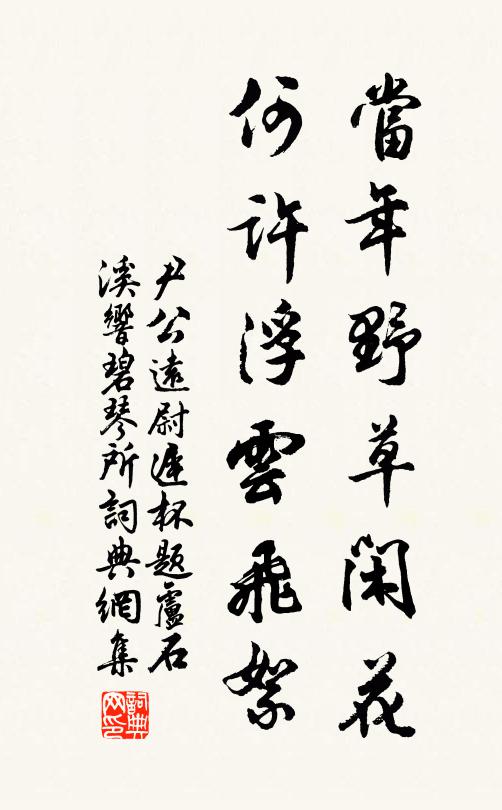 當年野草閑花
何許浮雲飛絮
尹公遠尉遲杯題盧石
溪響碧琴所詞典網集
詞典网印